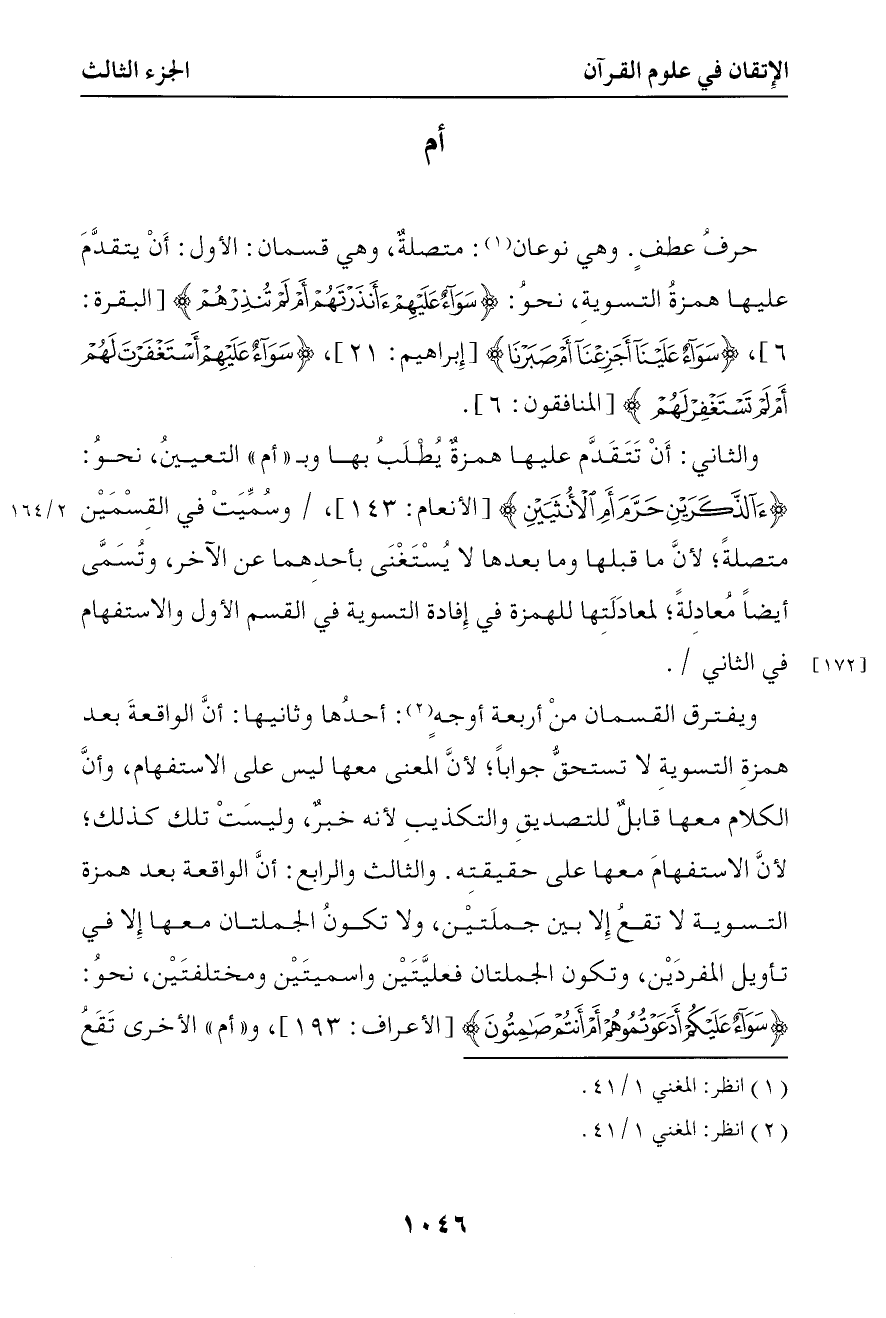 الإتقان في علوم القرآن الجزء الثالث
أم
حرفُ عطفٍ. وهي نوعان(١): متصلةٌ، وهي قسمان: الأول: أَنْ يتقدَّمَ
عليها همزةُ التسوية، نحوُ: ﴿سَوَآءٌ عَلَيْهِمْ ءَأَنذَرْتَهُمْ أَمْ لَمْ تُنذِرْهُمْ﴾ [البقرة:
٦]، ﴿سَوَآءٌ عَلَيْنَآ أَجَزِعْنَآ أَمْ صَبَرْنَا﴾ [إبراهيم: ٢١]، ﴿سَوَآءٌ عَلَيْهِمْ أَسْتَغْفَرْتَ لَهُمْ
أَمْ لَمْ تَسْتَغْفِرْ لَهُمْ﴾ [المنافقون: ٦].
والثاني: أَنْ تَتَقدَّم عليها همزةٌ يُطْلَبُ بها وبـ «أم» التعيينُ، نحوُ:
﴿ءَآلذَّكَرَيْنِ حَرَّمَ أَمِ ٱلْأُنثَيَيْنِ﴾ [الأنعام: ١٤٣]، / وسُمِّيَتْ في القِسْمَيْن ١٦٤/٢
متصلةً؛ لأنَّ ما قبلها وما بعدها لا يُسْتَغْنَى بأحدِهما عن الآخر، وتُسَمَّى
أيضاً مُعادِلةً؛ لمعادَلَتِها للهمزة في إفادة التسوية في القسم الأول والاستفهام
في الثاني / . [١٧٢]
ويفترق القسمان منْ أربعة أوجهٍ(٢): أحدُها وثانيها: أنَّ الواقعةَ بعد
همزةِ التسوية لا تستحقُّ جواباً؛ لأنَّ المعنى معها ليس على الاستفهام، وأنَّ
الكلام معها قابلٌ للتصديقِ والتكذيب لأنه خبرٌ، وليسَتْ تلك كذلك؛
لأنَّ الاستفهامَ معها على حقيقتِه. والثالث والرابع: أنَّ الواقعة بعد همزة
التسوية لا تقعُ إلا بين جملَتَيْن، ولا تكونُ الجملتان معها إلا في
تأويل المفردَيْن، وتكون الجملتان فعليَّتَيْن واسميتَيْن ومختلفتَيْن، نحوُ:
﴿سَوَآءٌ عَلَيْكُمْ أَدَعَوْتُمُوهُمْ أَمْ أَنتُمْ صَٰمِتُونَ﴾ [الأعراف: ١٩٣]، و«أم» الأخرى تَقَعُ
(١) انظر: المغني ٤١/١.
(٢) انظر: المغني ٤١/١.
١٠٤٦